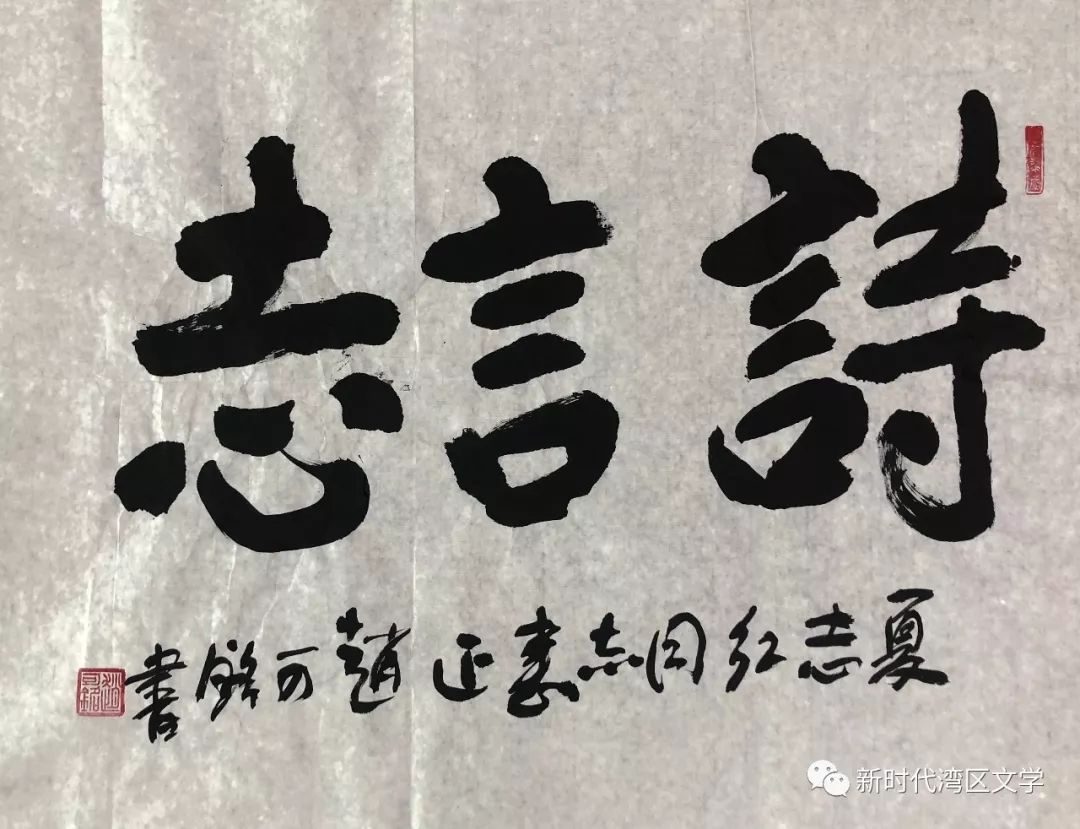 詩言志
夏志红同志惠正 趙可銘書
新时代湾区文学